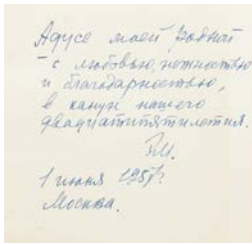 Адусе моей родной
– с любовью, нежностью
и благодарностью,
в канун нашего
двадцатипятилетия.
1 июня 1957 г.
Москва.